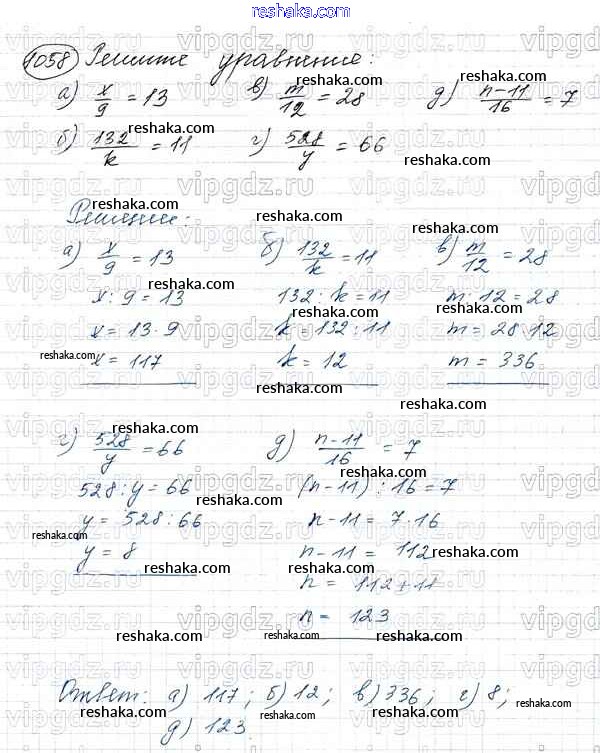 reshaka.com
1058 Решите уравнение:
а) x/9 = 13 в) m/12 = 28 д) (n-11)/16 = 7
б) 132/k = 11 г) 528/y = 66
Решение:
а) x/9 = 13 б) 132/k = 11 в) m/12 = 28
x : 9 = 13 132 : k = 11 m : 12 = 28
x = 13 · 9 k = 132 : 11 m = 28 · 12
x = 117 k = 12 m = 336
г) 528/y = 66 д) (n-11)/16 = 7
528 : y = 66 (n-11) : 16 = 7
y = 528 : 66 n-11 = 7 · 16
y = 8 n-11 = 112
n = 112 + 11
n = 123
Ответ: а) 117; б) 12; в) 336; г) 8;
д) 123.
vipgdz.ru